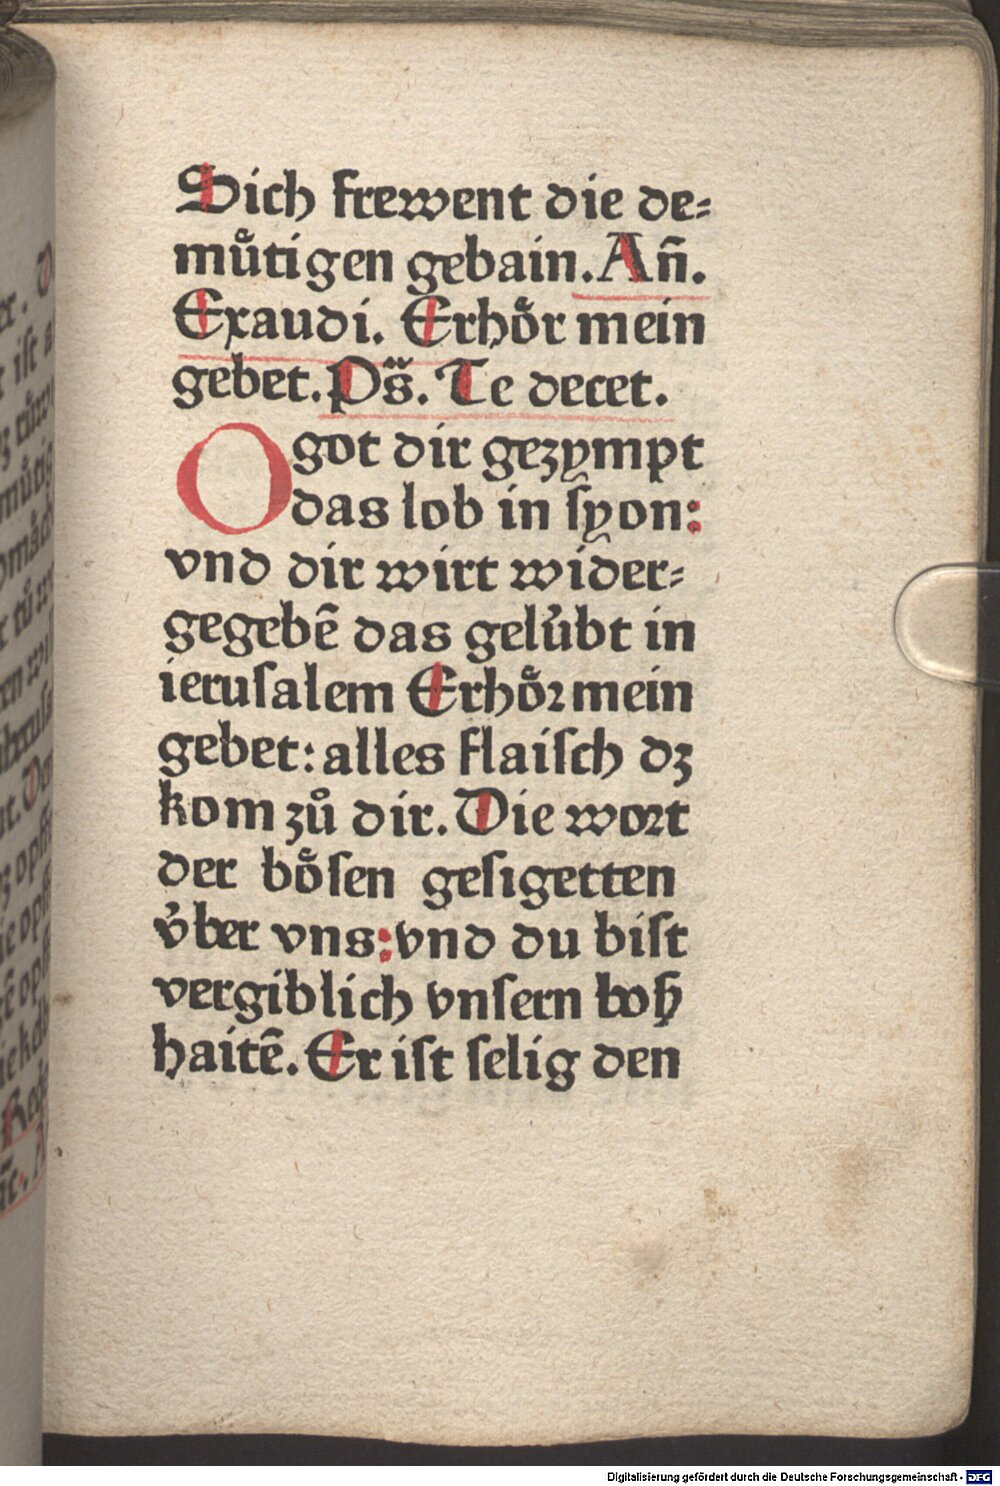 Sich frewent die de⸗
muͦtigen gebain. Añ.
Exaudi. Erhoͤr mein
gebet. Ps̄. Te decet.
O got dir gezympt
das lob in ſyon:
vnd dir wirt wider⸗
gegebē das geluͤbt in
ieruſalem Erhoͤꝛ mein
gebet: alles flaiſch dz
kom zuͦ dir. Die woꝛt
der boͤſen geſigetten
v̓ber vns: vnd du biſt
vergiblich vnſern boß
haitē. Er iſt ſelig den
Digitalisierung gefördert durch die Deutsche Forschungsgemeinschaft - DFG